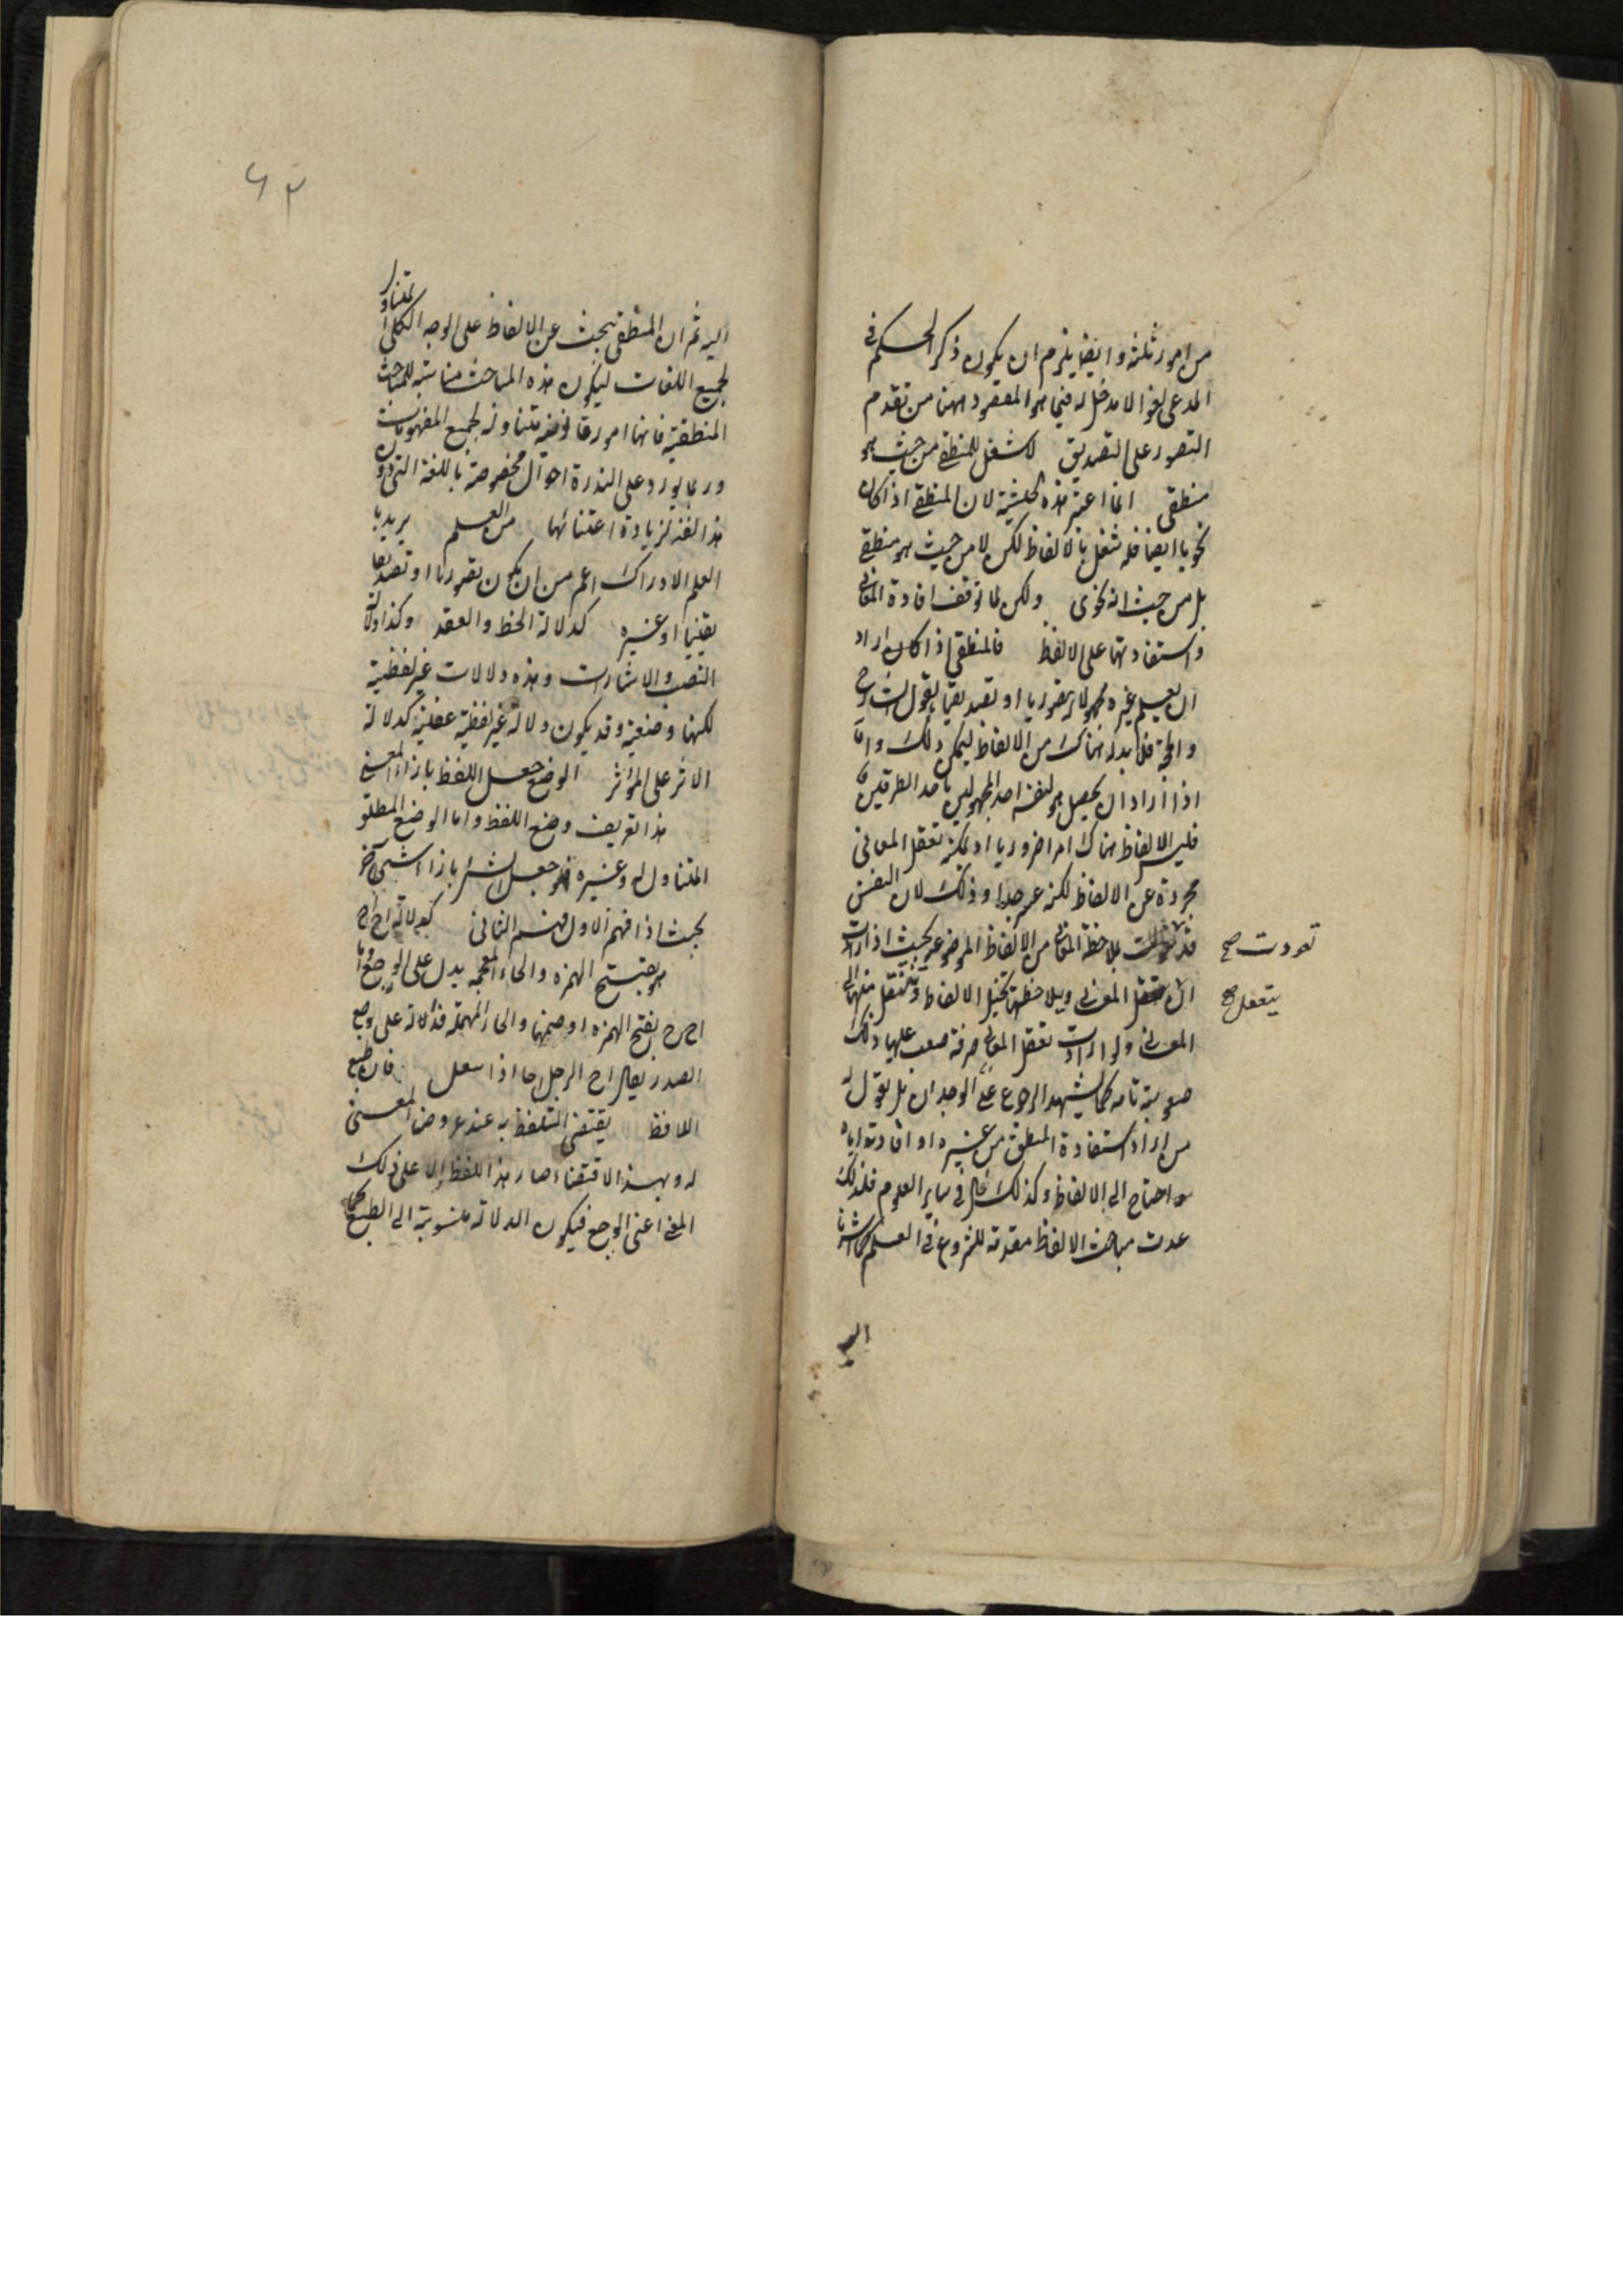 من امور ثلثة وايضا يلزم ان يكون ذكر الحكم في
المدعى لغوا لا مدخل له فيما هو المقصود ههنا من تقدم
التصور على التصديق لا شغل للمنطقي من حيث هو
منطقي انما اعتبر هذه الحيثية لان المنطقي اذا كان
نحويا ايضا فله شغل بالالفاظ لكن لا من حيث هو منطقي
بل من حيث انه نحوى ولكن لما توقف افادة المعاني
واستفادتها على الالفاظ فالمنطقي اذا كان اراد
ان يعلم غيره مجهولا تصوريا او تصديقيا بالقول الشارح
والحجة فلا بد له هناك من الالفاظ ليمكن ذلك واما
اذا اراد ان يحصل هو لنفسه احد المجهولين باحد الطريقين
فليس الالفاظ هناك امرا ضروريا اذ يمكنه تعقل المعاني
مجردة عن الالفاظ لكنه عسر جدا وذلك لان النفس
قد تعودت بملاحظة المعاني من الالفاظ الموضوعة بحيث اذا ارادت
تعودت صح
ان تتعقل المعاني ويلاحظها تتخيل الالفاظ وتنتقل منها الى
يتعقل صح
المعاني ولو ارادت تعقل المعاني صرفة صعب عليها ذلك
صعوبة تامة كما يشهد الرجوع الى الوجدان بل نقول
من اراد استفادة المنطق من غيره او افادته اياه
احتاج الى الالفاظ وكذلك الحال في ساير العلوم فلذلك
عدت مباحث الالفاظ مقدمة للشروع في العلم كما اشرنا
اليه
٤٢
اليه ثم ان المنطقي يبحث عن الالفاظ على الوجه الكلي المتناول
لجميع اللغات ليكون هذه المباحث مناسبة للمباحث
المنطقية فانها امور قانونية متناولة لجميع المفهومات
وربما يورد على الندرة احوال مخصوصة باللغة التي دون
هذا الفن لزيادة اعتنائها من العلم يريد با
العلم الادراك اعم من ان يكون تصوريا او تصديقا
يقينيا او غيره كدلالة الخط والعقد وكذا دلالة
النصب والاشارات وهذه دلالات غير لفظية
لكنها وضعية وقد يكون دلالة غير لفظية عقلية كدلالة
الاثر على المؤثر الوضع جعل اللفظ بازاء المعنى
هذا تعريف وضع اللفظ واما الوضع المطلق
المتناول له ولغيره فهو جعل الشئ بازاء شئ آخر
بحيث اذا فهم الاول فهم الثاني كدلالة اخ اخ
هو بفتح الهمزه والخاء المعجمة يدل على الوجع واما
اح اح بفتح الهمزه او ضمها والحاء المهملة فدلالة على وجع
الصدر يقال اح الرجل احا اذا سعل فان طبع
اللافظ يقتضى التلفظ به عند عروض المعنى
له وبهذا الاقتضاء صار هذا اللفظ دالا على ذلك
المعنى اعني الوجع فيكون الدلالة منسوبة الى الطبع كما